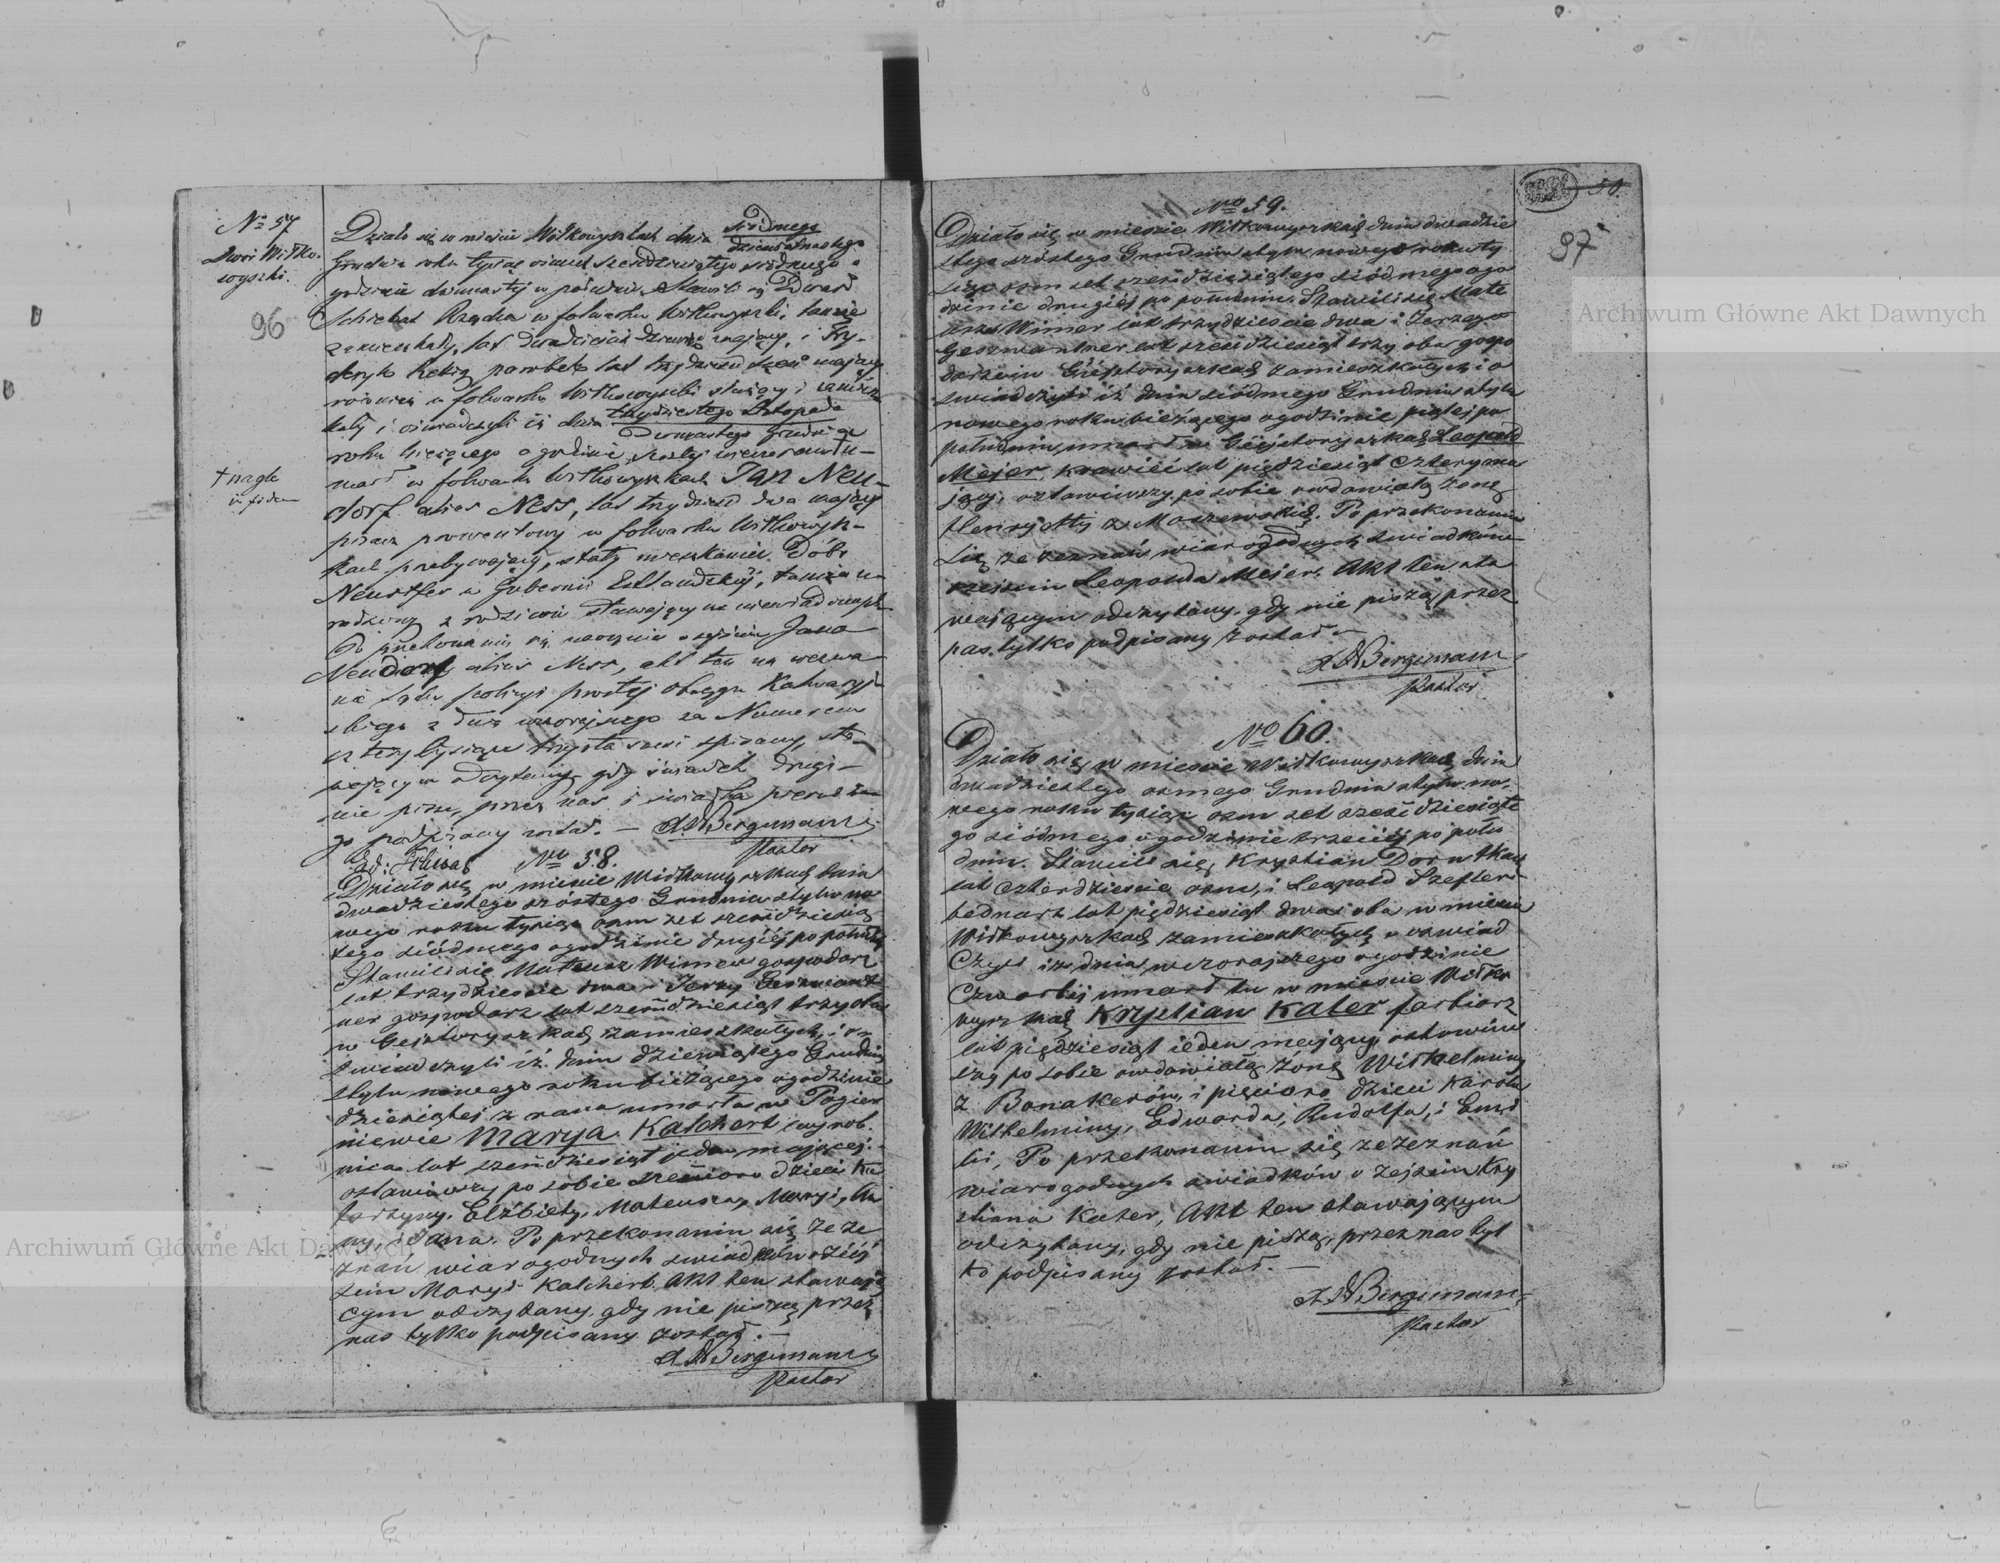 No 57
Dwór Wiłko-
wyszki.
96
† nagle
Działo się w mieście Wiłkowyszkach dnia siódmego
dziewiętnastego
Grudnia roku tysiąc ośmset sześćdziesiątego siódmego o
godzinie dwunastej w południe. Stawili się Edward
Schiebat Rządca w folwarku Wiłkowyszki, tamże
zamieszkały, lat dwadzieścia dziewięć mający, i Fry-
deryk Hekig parobek lat trzydzieści sześć mający
również w folwarku Wiłkowyszki służący i zamiesz-
kały i oświadczyli iż dnia trzydziestego Listopada
Dwunastego Grudnia
roku bieżącego o godzinie szóstej wieczorem u-
marł w folwarku Wiłkowyszkach Jan Neu-
dorf alias Ness, lat trzydzieści dwa mający
pisarz prowentowy w folwarku Wiłkowysz-
kach przebywający, stały mieszkaniec Dóbr
Neustfer w Gubernii Estlandzkiej, tamże u-
rodzony z rodziców stawającym niewiadomych
Po przekonaniu się naocznie o zejściu Jana
Neudorf alias Ness, akt ten na wezwa-
nie Sądu Policyi prostej Okręgu Kalwaryj-
skiego z dnia wczorajszego za Numerem
cztery tysiące trzysta sześć spisany, sta-
wającym odczytany, gdy świadek drugi
nie pisze, przez nas i świadka pierwsze-
go podpisany został. —
A. W Bergmann
Pastor
No 58.
Działo się w mieście Wiłkowyszkach dnia
dwudziestego szóstego Grudnia stylu no
wego roku tysiąc osm set sześćdziesią
tego siódmego o godzinie drugiéj po połud
Stawili się Mateusz Wimer gospodarz
lat trzydzieście dwa i Jerzy Geszwandt
ner gospodarz lat sześćdziesiąt trzy oba
w Gejstoryszkach zamieszkałych, i o
świadczyli iż dnia dziewiątego Grudnia
stylu nowego roku bieżącego o godzinie
dziesiątej z rana umarła w Pojier
niewie Marya Kalchert wyrob.
nica lat sześćdziesiąt jeden mającej.
ostawiwszy po sobie sześcioro dzieci Ka
tarzyny, Elżbiety, Mateusza, Maryi, An
ny, i Jana. Po przekonaniu się ze ze
znań wiarogodnych świadków o zéjś
ciu Maryi Kalchert. Akt ten stawają
cym odczytany, gdy nie piszą przez
nas tylko podpisany został. —
A. W Bergmann
Pastor
50.
97
No 59.
Działo się w mieście Wiłkowyszkach dnia dwudzie
stego szóstego Grudnia stylu nowego roku ty
siąc osm set sześćdziesiątego siódmego o go
dzinie drugiéj po południu. Stawili się Mate
usz Wimer lat trzydzieście dwa i Jerzego
Geszwantner lat sześćdziesiąt trzy oba gospo
darze w Giejstoryszkach zamieszkałych i o
świadczyli iż dnia siódmego Grudnia stylu
nowego roku bieżącego o godzinie piątej po
południu, umarł w Giejstoryszkach Leopold
Mejer, krawiec lat pięćdziesiąt cztery ma
jący, ostawiwszy po sobie owdowiałą żonę
Henryettę z Maszewskich. Po przekonaniu
się ze zeznań wiarogodnych świadków o
zejściu Leopolda Mejer. Akt ten sta
wającym odczytany, gdy nie piszą, przez
nas tylko podpisany został —
A. W Bergmann
Pastor
No 60.
Działo się w mieście Wiłkowyszkach dnia
dwudziestego osmego Grudnia stylu no,
wego roku tysiąc osm set sześć dziesiąte
go siódmego o godzinie trzeciéj po połu
dniu. Stawili się, Krystian Dorn tkacz
lat czterdzieście osm, i Leopold Szefler
bednarz lat pięćdziesiąt dwa oba w mieście
Wiłkowyszkach zamieszkałych, o oswiad
czyli iż dnia wczorajszego o godzinie
czwartéj umarł tu w mieście Wiłko
wyszkach Krystian Kater farbiarz
lat pięćdziesiąt ieden mający, ostawiw
szy po sobie owdowiałą żonę Wilhelminę
z Bonakerów, i pięcioro dzieci Karola
Wilhelminy, Edwarda, Rudolfa, i Emi
lii, Po przekonaniu się ze zeznań
wiarogodnych świadków o zejściu Kry
stiana Kater, Akt ten stawającym
odczytany, gdy nie piszą, przez nas tyl
ko podpisany został. —
A. W Bergmann
Pastor
Archiwum Główne Akt Dawnych
Archiwum Główne Akt Dawnych